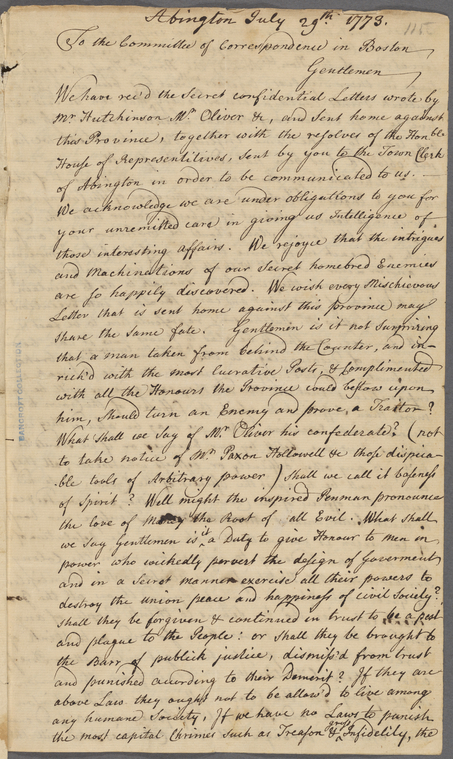 Abington July 29th. 1773.
115
To the Committee of Correspondence in Boston
Gentlemen
We have rec'd the Secret confidential Letters wrote by
Mr Hutchinson Mr. Oliver &c, and Sent home against
this Province, together with the resolves of the Honble
House of Representitives, Sent by you to the Town Clerk
of Abington in order to be communicated to us.
We acknowledge we are under obligations to you for
your unremitted care in giving us Intelligence of
those interesting affairs. We rejoyce that the intrigues
and Machinations of our Secret homebred Enemies
are so happily discovered. We wish every Mischievous
Letter that is sent home against this province may
share the same fate. Gentlemen is it not Surprizing
that a man taken from behind the Counter, and in-
rich'd with the most lucrative Posts, & complimented
with all the Honours the Province could bestow upon
him, Should turn an Enemy and prove, a Traitor?
What shall we Say of Mr. Oliver his confederate? (not
to take notice of Mr. Paxon Hollowell &c those dispica-
ble tools of Arbitrary power.) Shall we call it baseness
of Spirit? Well might the inspired Penman pronounce
the love of Money the Root of all Evil. What shall
we Say Gentlemen is it a Duty to give Honour to men in
power who wickedly pervert the design of Goverment
and in a Secret manner exercise all their powers to
destroy the union peace and happiness of civil Society?
shall they be forgiven & continued in trust to be a pest
and plague to the People: or shall they be brought to
the Barr of publick justice, dismiss'd from trust
and punished according to their Demerit? If they are
above Law they ought not to be allow'd to live among
any humane Society, If we have no Laws to punish
the most capital Chrimes such as Treason & gross Infidelity, the
BANCROFT COLLECTION